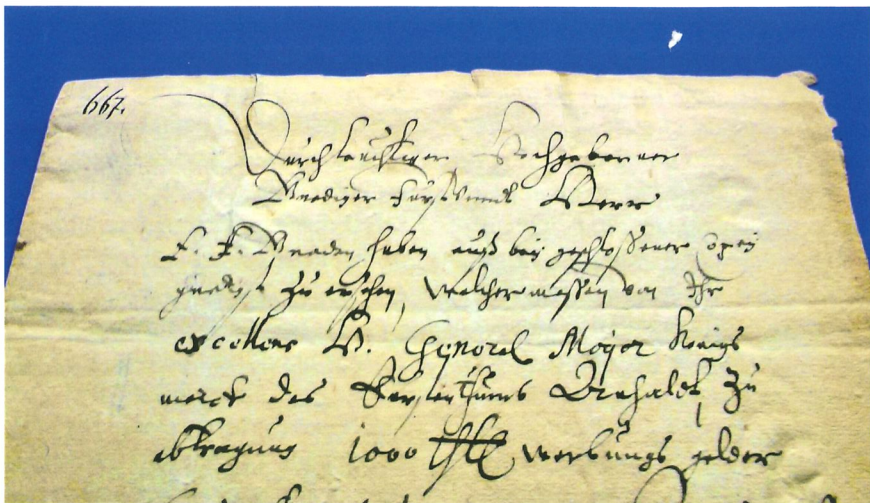 667.
Durchlauchtiger Hochgeborner
Gnediger Fürst undt Herr
E. F. Gnaden haben auß beÿ geschloßener Copeÿ
gnedigst zu ersehen, Welcher massen von Ihr
excellens H. General Major Königs
marck das Fürstenthumb Anhaldt, zu
abtragung 1000 Thll werbungs gelder